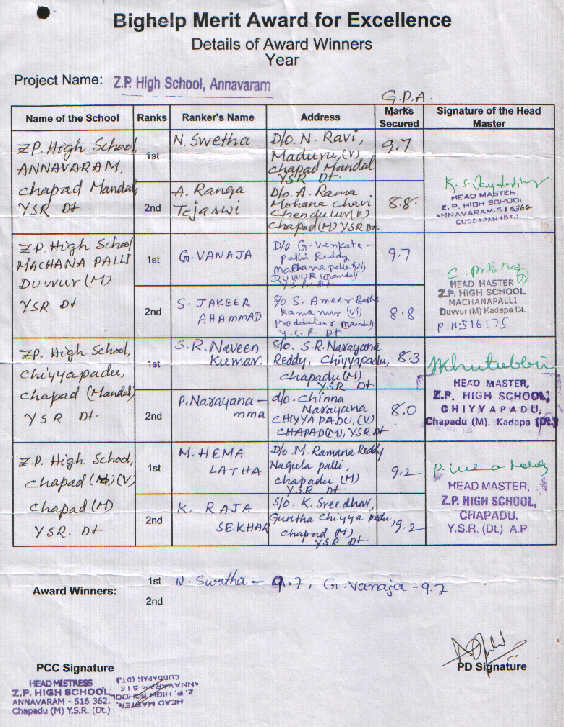 Bighelp Merit Award for Excellence
Details of Award Winners
Year
Project Name: Z.P. High School, Annavaram
G.P.A.
Name of the School Ranks Ranker's Name Address Marks Secured Signature of the Head Master
Z.P. High School
ANNAVARAM,
chapad Mandal
YSR Dt
1st N. Swetha
D/o. N. Ravi,
Maduru, (V)
chapad Mandal
YSR Dt.
9.7
2nd A. Ranga
Tejaswi
D/o. A. Rama
Mohana Chari
Chenduluru (V)
Chapad (M) YSR Dt.
8.8
HEAD MASTER,
Z. P. HIGH SCHOOL
ANNAVARAM-516362
Z.P. High School
MACHANA PALLI
Duvvur (M)
YSR Dt
1st G. VANAJA
D/o G. Venkata
palli Reddy
Machanapalle (V),
9.7
2nd S. JAKEER
AHAMMAD
S/o S. Ameer
Ramanur (V)
Proddatur (Mandal)
Y.S.R Dt
8.8
HEAD MASTER
Z.P. HIGH SCHOOL
MACHANAPALLI
Duvvur (M) Kadapa Dt.
Z.P. High School,
Chiyyapadu,
chapad (Mandal)
YSR Dt.
1st S.R. Naveen
Kumar.
S/o. S.R. Narayana
Reddy, Chiyyapadu,
Chapadu (M)
YSR Dt
8.3
2nd P. Narayana-
mma
d/o - Chinna
Narayana
CHIYYAPADU, (V)
CHAPADU (M), YSR Dt
8.0
HEAD MASTER,
Z.P. HIGH SCHOOL,
CHIYYAPADU,
Chapadu (M). Kadapa (Dt.)
Z.P. High School,
chapad (V)
chapad (M)
YSR. Dt
1st M. HEMA
LATHA
D/o M. Ramana Reddy
Nagula palli,
chapadu (M)
Y.S.R Dt
9.2
2nd K. RAJA
SEKHAR
S/o. K. Sreedhar,
Guntha chiyya padu
chapad (M)
YSR Dt
9.2
HEAD MASTER,
Z.P. HIGH SCHOOL,
CHAPADU.
Y.S.R. (Dt.) A.P.
Award Winners: 1st N. Swetha - 9.7, G. Vanaja - 9.7
2nd
PCC Signature
PD Signature
HEAD MISTRESS
Z.P. HIGH SCHOOL
ANNAVARAM - 516 362.
Chapadu (M) Y.S.R. (Dt.)